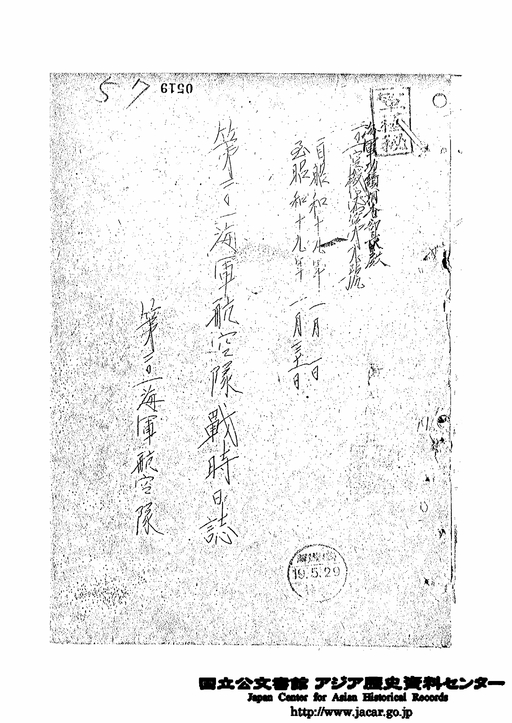 軍極秘
海軍功績調査部長殿
自昭和十九年一月一日
至昭和十九年一月三十一日
第二〇一海軍航空隊戰時日誌
第二〇一海軍航空隊
57
0519
19.5.29
国立公文書館 アジア歴史資料センター
Japan Center for Asian Historical Records
http://www.jacar.go.jp